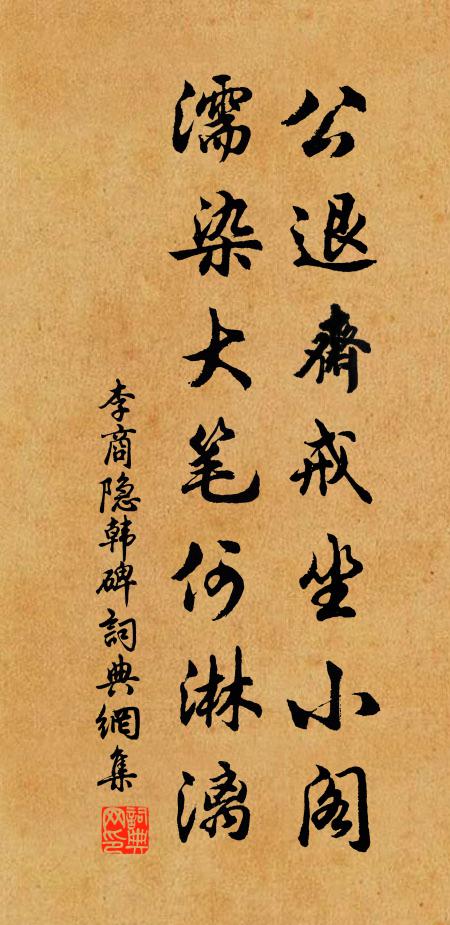 公退齋戒坐小阁
濡染大笔何淋漓
李商隐韩碑詞典網集
詞典网印